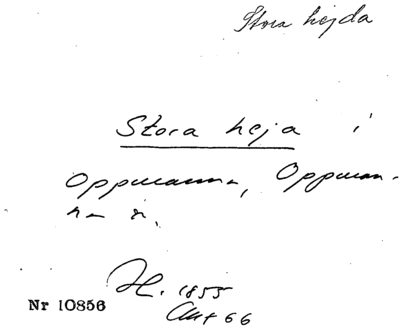 Stora hejda
Stora heja i
Oppmanna, Oppman-
na s.
H. 1855
66
Nr 10856